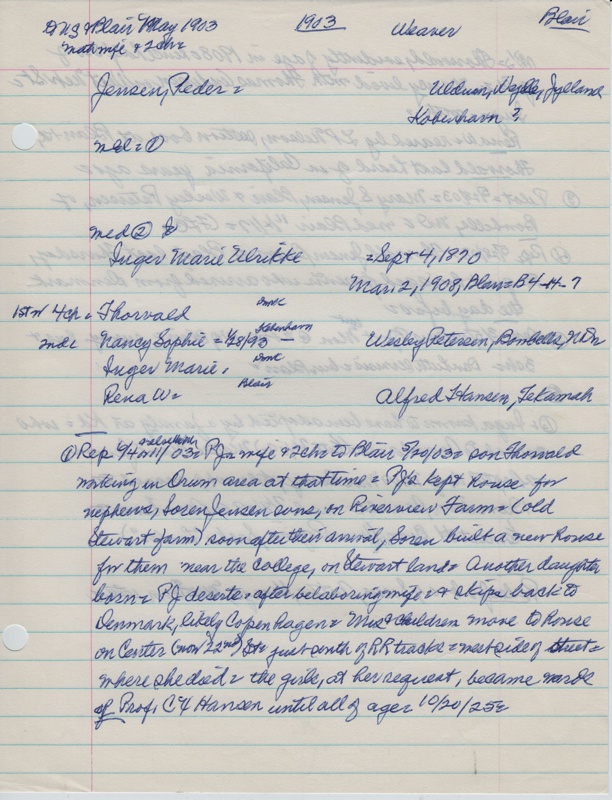 D N S & Blair May 1903 1903 Weaver Blair
with wife & 2 chr =
Jensen, Peder = Uldum, Vejle, Jylland
Kobenhavn ?
md = ①
md ②
Inger Marie Ulrikke = Sept 4, 1870
Mar. 2, 1908, Blair = B4-H-7
1st w 4 ch = Thorvald Dmk
md = Nancy Sophie = 1/28/93 — Kobenhavn Wesley Petersen, Bombells,
Inger Marie, Dmk
Rena W = Blair Alfred Hansen, Tekamah
① Rep 03 = PJ = wife & 2 chr to Blair 5/20/03 = son Thorvald
working in Orum area at that time = PJ's kept house for
nephews, Soren Jensen sons, on Riverview Farm = (old
Stewart farm) soon after their arrival, Soren built a new house
for them near the college, on Stewart land = Another daughter
born = PJ deserts = after belaboring wife = & skips back to
Denmark, likely Copenhagen = Mrs & children move to house
on Center (now 22nd) St = just south of RR tracks = west side of street =
where she died = the girls, at her request, became wards
of Prof. C X Hansen until all of age = 10/20/25 =